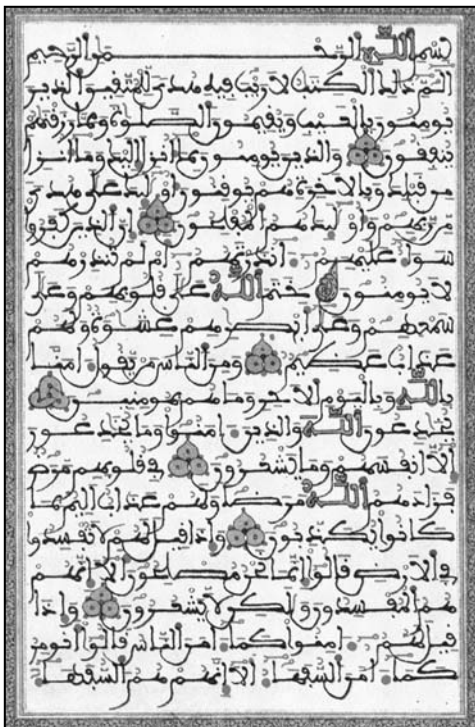 بسم الله الرحمن الرحيم
الم ذلك الكتب لا ريب فيه هدى للمتقين الذين
يومنون بالغيب ويقيمون الصلوة ومما رزقنهم
ينفقون والذين يومنون بما انزل اليك وما انزل
من قبلك وبالاخرة هم يوقنون اوليك على هدى
من ربهم واوليك هم المفلحون ان الذين كفروا
سواء عليهم ءانذرتهم ام لم تنذرهم
لا يومنون ختم الله على قلوبهم وعلى
سمعهم وعلى ابصرهم غشوة ولهم
عذاب عظيم ومن الناس من يقول امنا
بالله وباليوم الاخر وما هم بمومنين
يخدعون الله والذين امنوا وما يخدعون
الا انفسهم وما يشعرون في قلوبهم مرض
فزادهم الله مرضا ولهم عذاب اليم بما
كانوا يكذبون واذا قيل لهم لا تفسدوا
في الارض قالوا انما نحن مصلحون الا انهم
هم المفسدون ولكن لا يشعرون واذا
قيل لهم امنوا كما امن الناس قالوا انومن
كما امن السفهاء الا انهم هم السفهاء